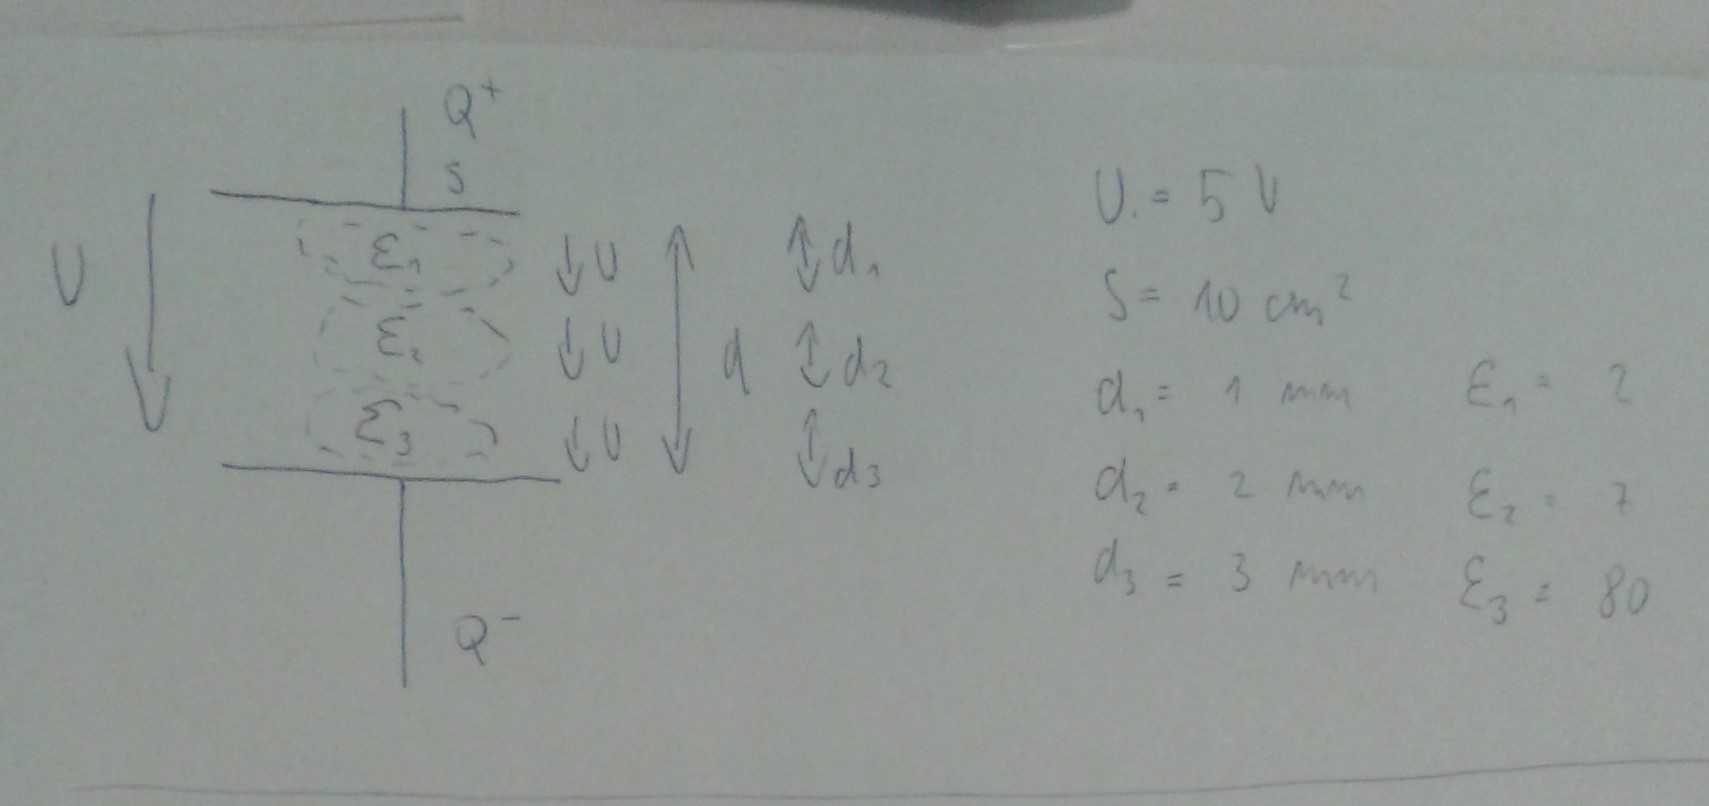 Q⁺
S
U
ε₁ ↓U d₁
ε₂ ↓U d d₂
ε₃ ↓U d₃
Q⁻
U = 5 V
S = 10 cm²
d₁ = 1 mm ε₁ = 2
d₂ = 2 mm ε₂ = 7
d₃ = 3 mm ε₃ = 80